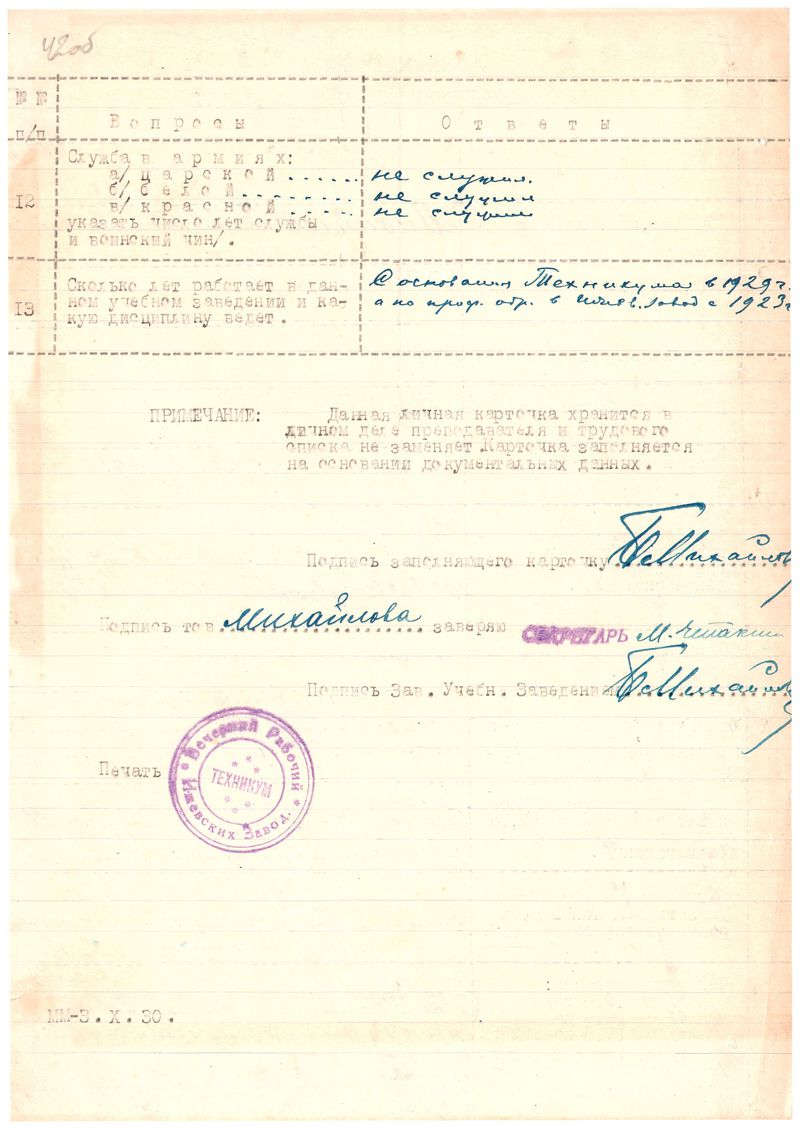 42об
№ №
п/п
Вопросы
Ответы
12
Служба в армиях:
а/ царской ...... не служил.
б/ белой ........ не служил
в/ красной ...... не служил
указать число лет службы
и воинский чин/.
13
Сколько лет работает в дан-
ном учебном заведении и ка-
кую дисциплину ведет.
С основания Техникума в 1929 г.
а по проф. обр. в Ижев. завод с 1923 г
ПРИМЕЧАНИЕ: Данная личная карточка хранится в
личном деле преподавателя и трудового
списка не заменяет. Карточка заполняется
на основании документальных данных.
Подпись заполняющего карточку Михайлов
Подпись тов Михайлова заверяю СЕКРЕТАРЬ
Подпись Зав. Учебн. Заведением Михайлов
Печать
Вечерний Рабочий
ТЕХНИКУМ
Ижевских Завод.
ММ-3.X.30.